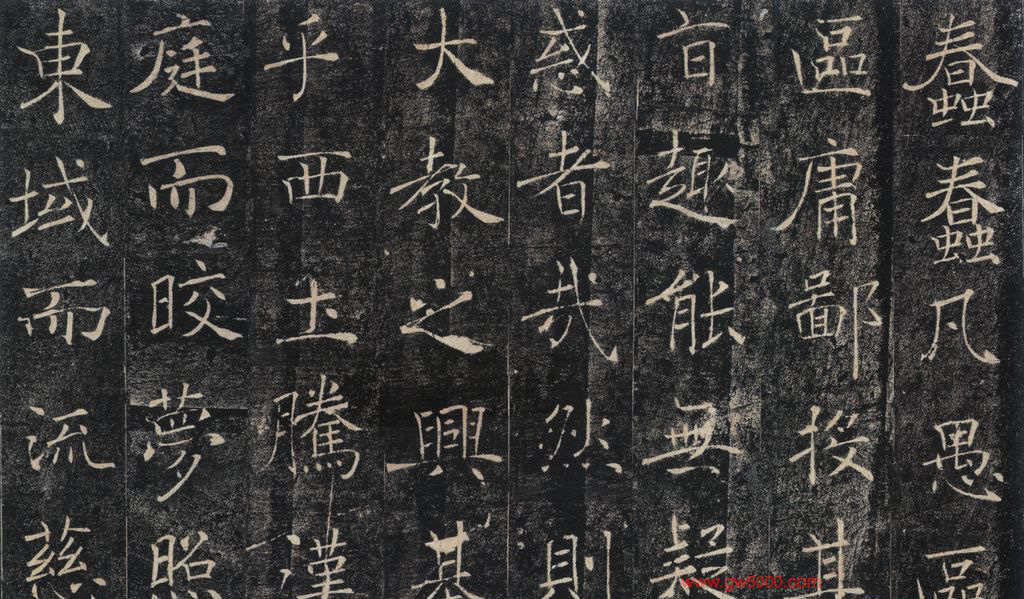 蠢蠢凡愚區
區庸鄙投其
旨趣能無疑
惑者哉然則
大教之興基
乎西土騰漢
庭而晈夢照
東域而流慈
www.gw5000.com